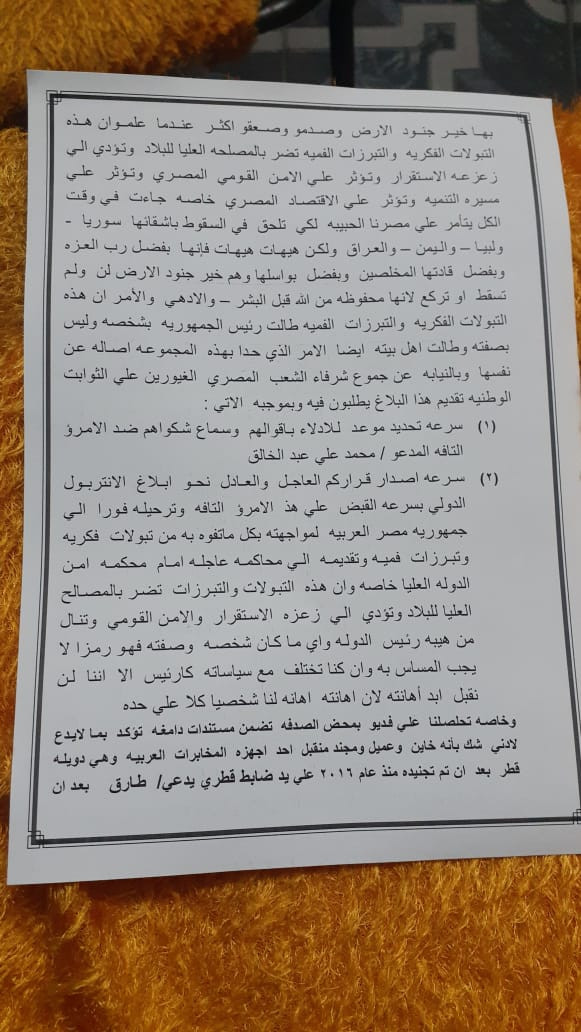 بها خير جنود الارض وصدمو وصعقو اكثر عندما علموان هذه
التبولات الفكريه والتبرزات الفميه تضر بالمصلحه العليا للبلاد وتؤدي الي
زعزعه الاستقرار وتؤثر علي الامن القومي المصري وتؤثر علي
مسيره التنميه وتؤثر علي الاقتصاد المصري خاصه جاءت في وقت
الكل يتأمر علي مصرنا الحبيبه لكي تلحق في السقوط باشقائها سوريا -
ولبيا – واليمن – والعراق ولكن هيهات هيهات فإنها بفضل رب العزه
وبفضل قادتها المخلصين وبفضل بواسلها وهم خير جنود الارض لن ولم
تسقط او تركع لانها محفوظه من الله قبل البشر – والادهي والأمر ان هذه
التبولات الفكريه والتبرزات الفميه طالت رئيس الجمهوريه بشخصه وليس
بصفته وطالت اهل بيته ايضا الامر الذي حدا بهذه المجموعه اصاله عن
نفسها وبالنيابه عن جموع شرفاء الشعب المصري الغيورين علي الثوابت
الوطنيه تقديم هذا البلاغ يطلبون فيه وبموجبه الاتي :
(١) سرعه تحديد موعد للادلاء باقوالهم وسماع شكواهم ضد الامرؤ
التافه المدعو / محمد علي عبد الخالق
(٢) سرعه اصدار قراركم العاجل والعادل نحو ابلاغ الانتربول
الدولي بسرعه القبض علي هذ الامرؤ التافه وترحيله فورا الي
جمهوريه مصر العربيه لمواجهته بكل ماتفوه به من تبولات فكريه
وتبرزات فميه وتقديمه الي محاكمه عاجله امام محكمه امن
الدوله العليا خاصه وان هذه التبولات والتبرزات تضر بالمصالح
العليا للبلاد وتؤدي الي زعزه الاستقرار والامن القومي وتنال
من هيبه رئيس الدوله واي ما كان شخصه وصفته فهو رمزا لا
يجب المساس به وان كنا تختلف مع سياساته كارئيس الا اننا لن
نقبل ابد أهانته لان اهانته اهانه لنا شخصيا كلا علي حده
وخاصه تحصلنا علي فديو بمحض الصدفه تضمن مستندات دامغه تؤكد بما لايدع
لادني شك بأنه خاين وعميل ومجند منقبل احد اجهزه المخابرات العربيه وهي دويله
قطر بعد ان تم تجنيده منذ عام ٢٠١٦ علي يد ضابط قطري يدعي/ طارق بعد ان